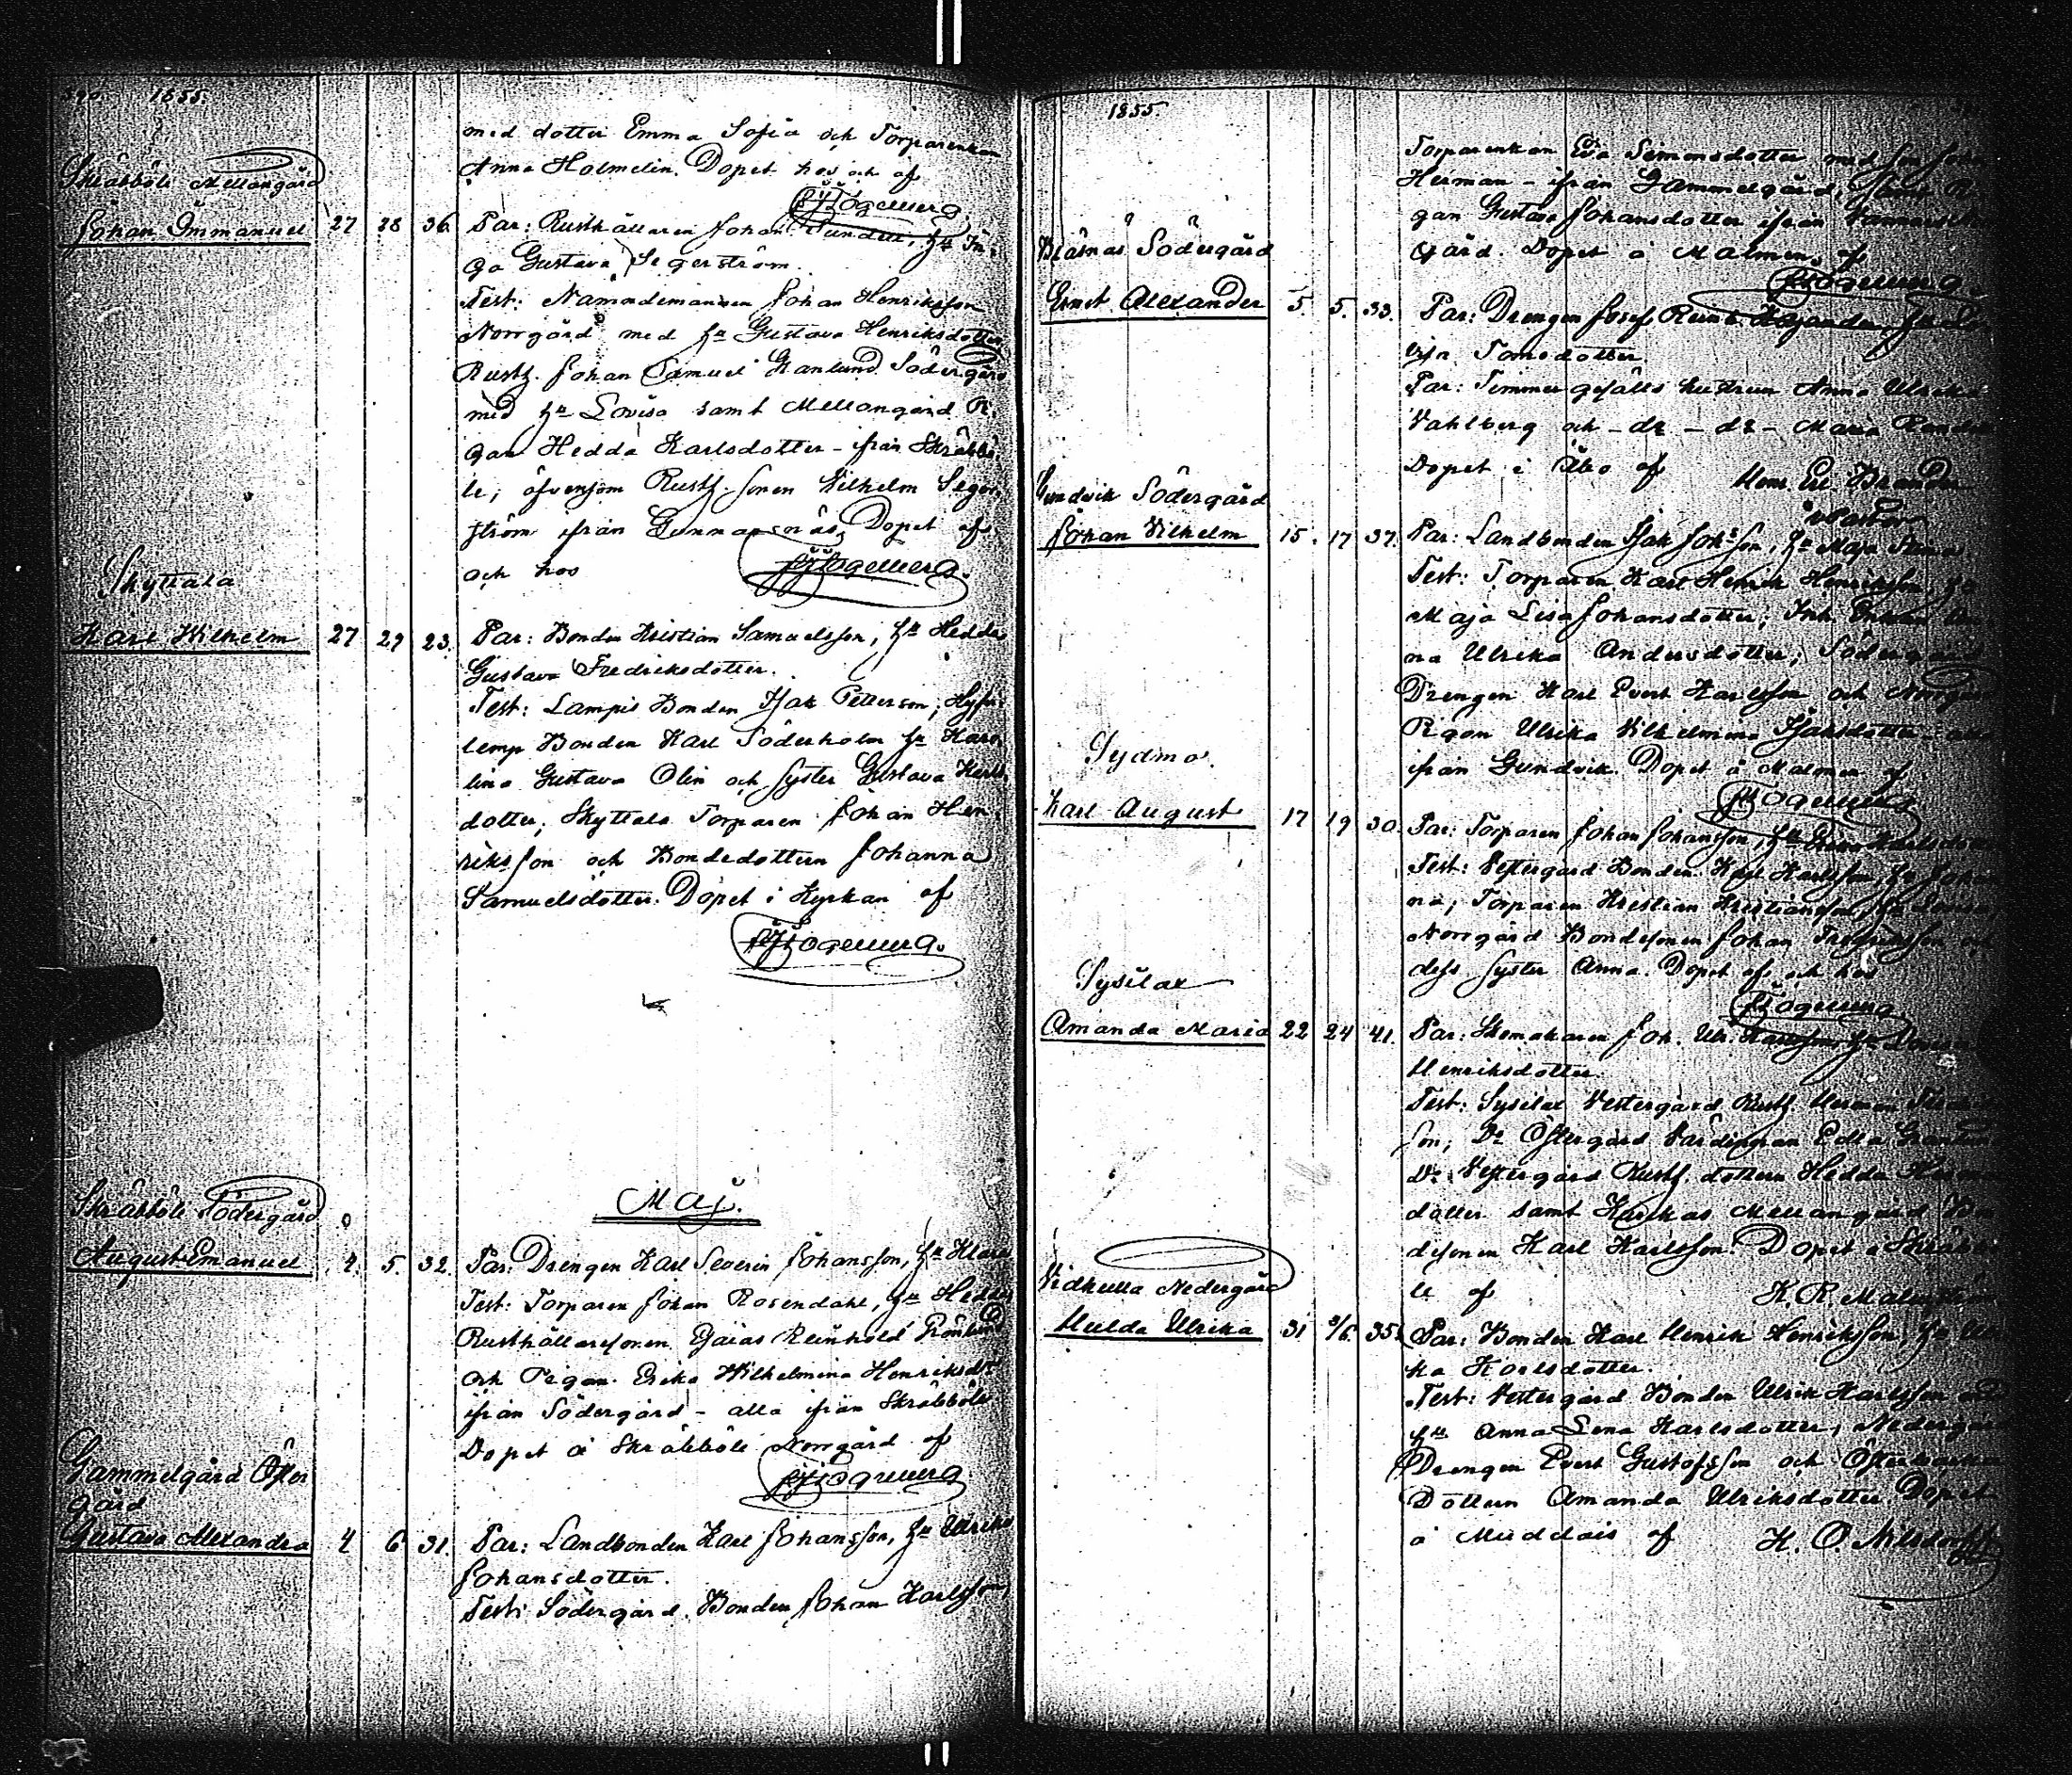 1855.
med dotter Emma Sofia och Torparenkan
Anna Holmelin. Döpet hos och af
Skräbböle Mellangård
Johan Emmanuel 27 28 36. Par: Rusthållaren Johan Sundell, Hu In-
ga Gustava Segerström.
Test: Nämndemannen Johan Henriksson
Norrgård med Hu Gustava Henriksdotter
Rusth. Johan Samuel Granlund Södergård
med Hu Lovisa samt Mellangård Pi-
gan Hedda Karlsdotter - ifrån Skräbbö-
le, äfvensom Rusth. sonen Wilhelm Seger-
ström ifrån Gunnarsnäs. Döpet af
och hos
Skyttala
Karl Wilhelm 27 29 23. Par: Bonden Kristian Samuelsson, Hu Hedda
Gustava Fredriksdotter.
Test: Lampis Bonden Isak Petterson,
Bonden Karl Söderholm Hu Karo-
lina Gustava Olin och syster Gustava Karls-
dotter, Skyttala Torparen Johan Hen-
riksson och Bondedottern Johanna
Samuelsdotter. Döpet i Kyrkan af
Maj.
Skräbböle Södergård
August Emanuel 4. 5. 32. Par: Drengen Karl Severin Johansson, Hu Klara
Test: Torparen Johan Rosendahl, Hu Hedda
Rusthållaresonen Esaias Reinhold Grönlund
och Pigan Erika Wilhelmina Henriksdr
ifrån Södergård - alla ifrån Skräbböle
Döpet å Skräbböle Norrgård af
Gammelgård Öster
gård
Gustava Alexandra 4 6 31. Par: Landbonden Karl Johansson, Hu Ulrika
Johansdotter.
Test: Södergård Bonden Johan Karlsson
1855.
Torparenkan Eva Simonsdotter med son Johan
Herman - ifrån Gammelgård,
gan Gustava Johansdotter ifrån Gammel
gård. Döpet å Malmen af
Bläsnäs Södergård
Ernst Alexander 5. 5. 33. Par: Drengen Josef Reinh. Kajander Hu Lo-
visa Tomsdotter.
Par: Timmergesälls hustrun Anna Ulrika
Vahlberg och - do - do - Maria
Döpet i Åbo af
Gundvik Södergård
Johan Vilhelm 15. 17 37. Par: Landbonden Isak Johsson, Hu Maja Stina
Test: Torparen Karl Henrik Henriksson, Hu
Maja Lisa Johansdotter; Inh.
na Ulrika Andersdotter; Södergård
Drengen Karl Evert Karlsson och Norrgård
Pigan Ulrika Vilhelmina Isaksdotter alla
ifrån Gundvik. Döpet å Malmen af
Sydmo.
Karl August 17 19 30. Par: Torparen Johan Johansson, Hu
Test: Vestergård Bonden Karl Karlsson, Hu Johan-
na, Torparen Kristian Kristiansson, Hu Lovisa,
Norrgård Bondesonen Johan och
dess syster Anna. Döpet af och hos
Sysilax
Amanda Maria 22 24 41. Par: Skomakaren Joh. Ulr. Karlsson, Hu Lovisa
Henriksdotter.
Test: Sysilax Vestergård Rusth. Herman
son; Do Östergård Edla
Do Vestergård Rusth. dottern Hedda
dotter samt Mellangård Bon-
desonen Karl Karlsson. Döpet i Skräbbö-
le af K. R. Malmström
Vidkulla Nedergård
Hulda Ulrika 31 3/6. 35. Par: Bonden Karl Henrik Henriksson, Hu Ulri-
ka Karlsdotter.
Test: Vestergård Bonden Ulrik Karlsson och
Hu Anna Lena Karlsdotter, Nedergård
Drengen Evert Gustafsson och
Dottern Amanda Ulriksdotter Döpet
å Muddais af K. O.